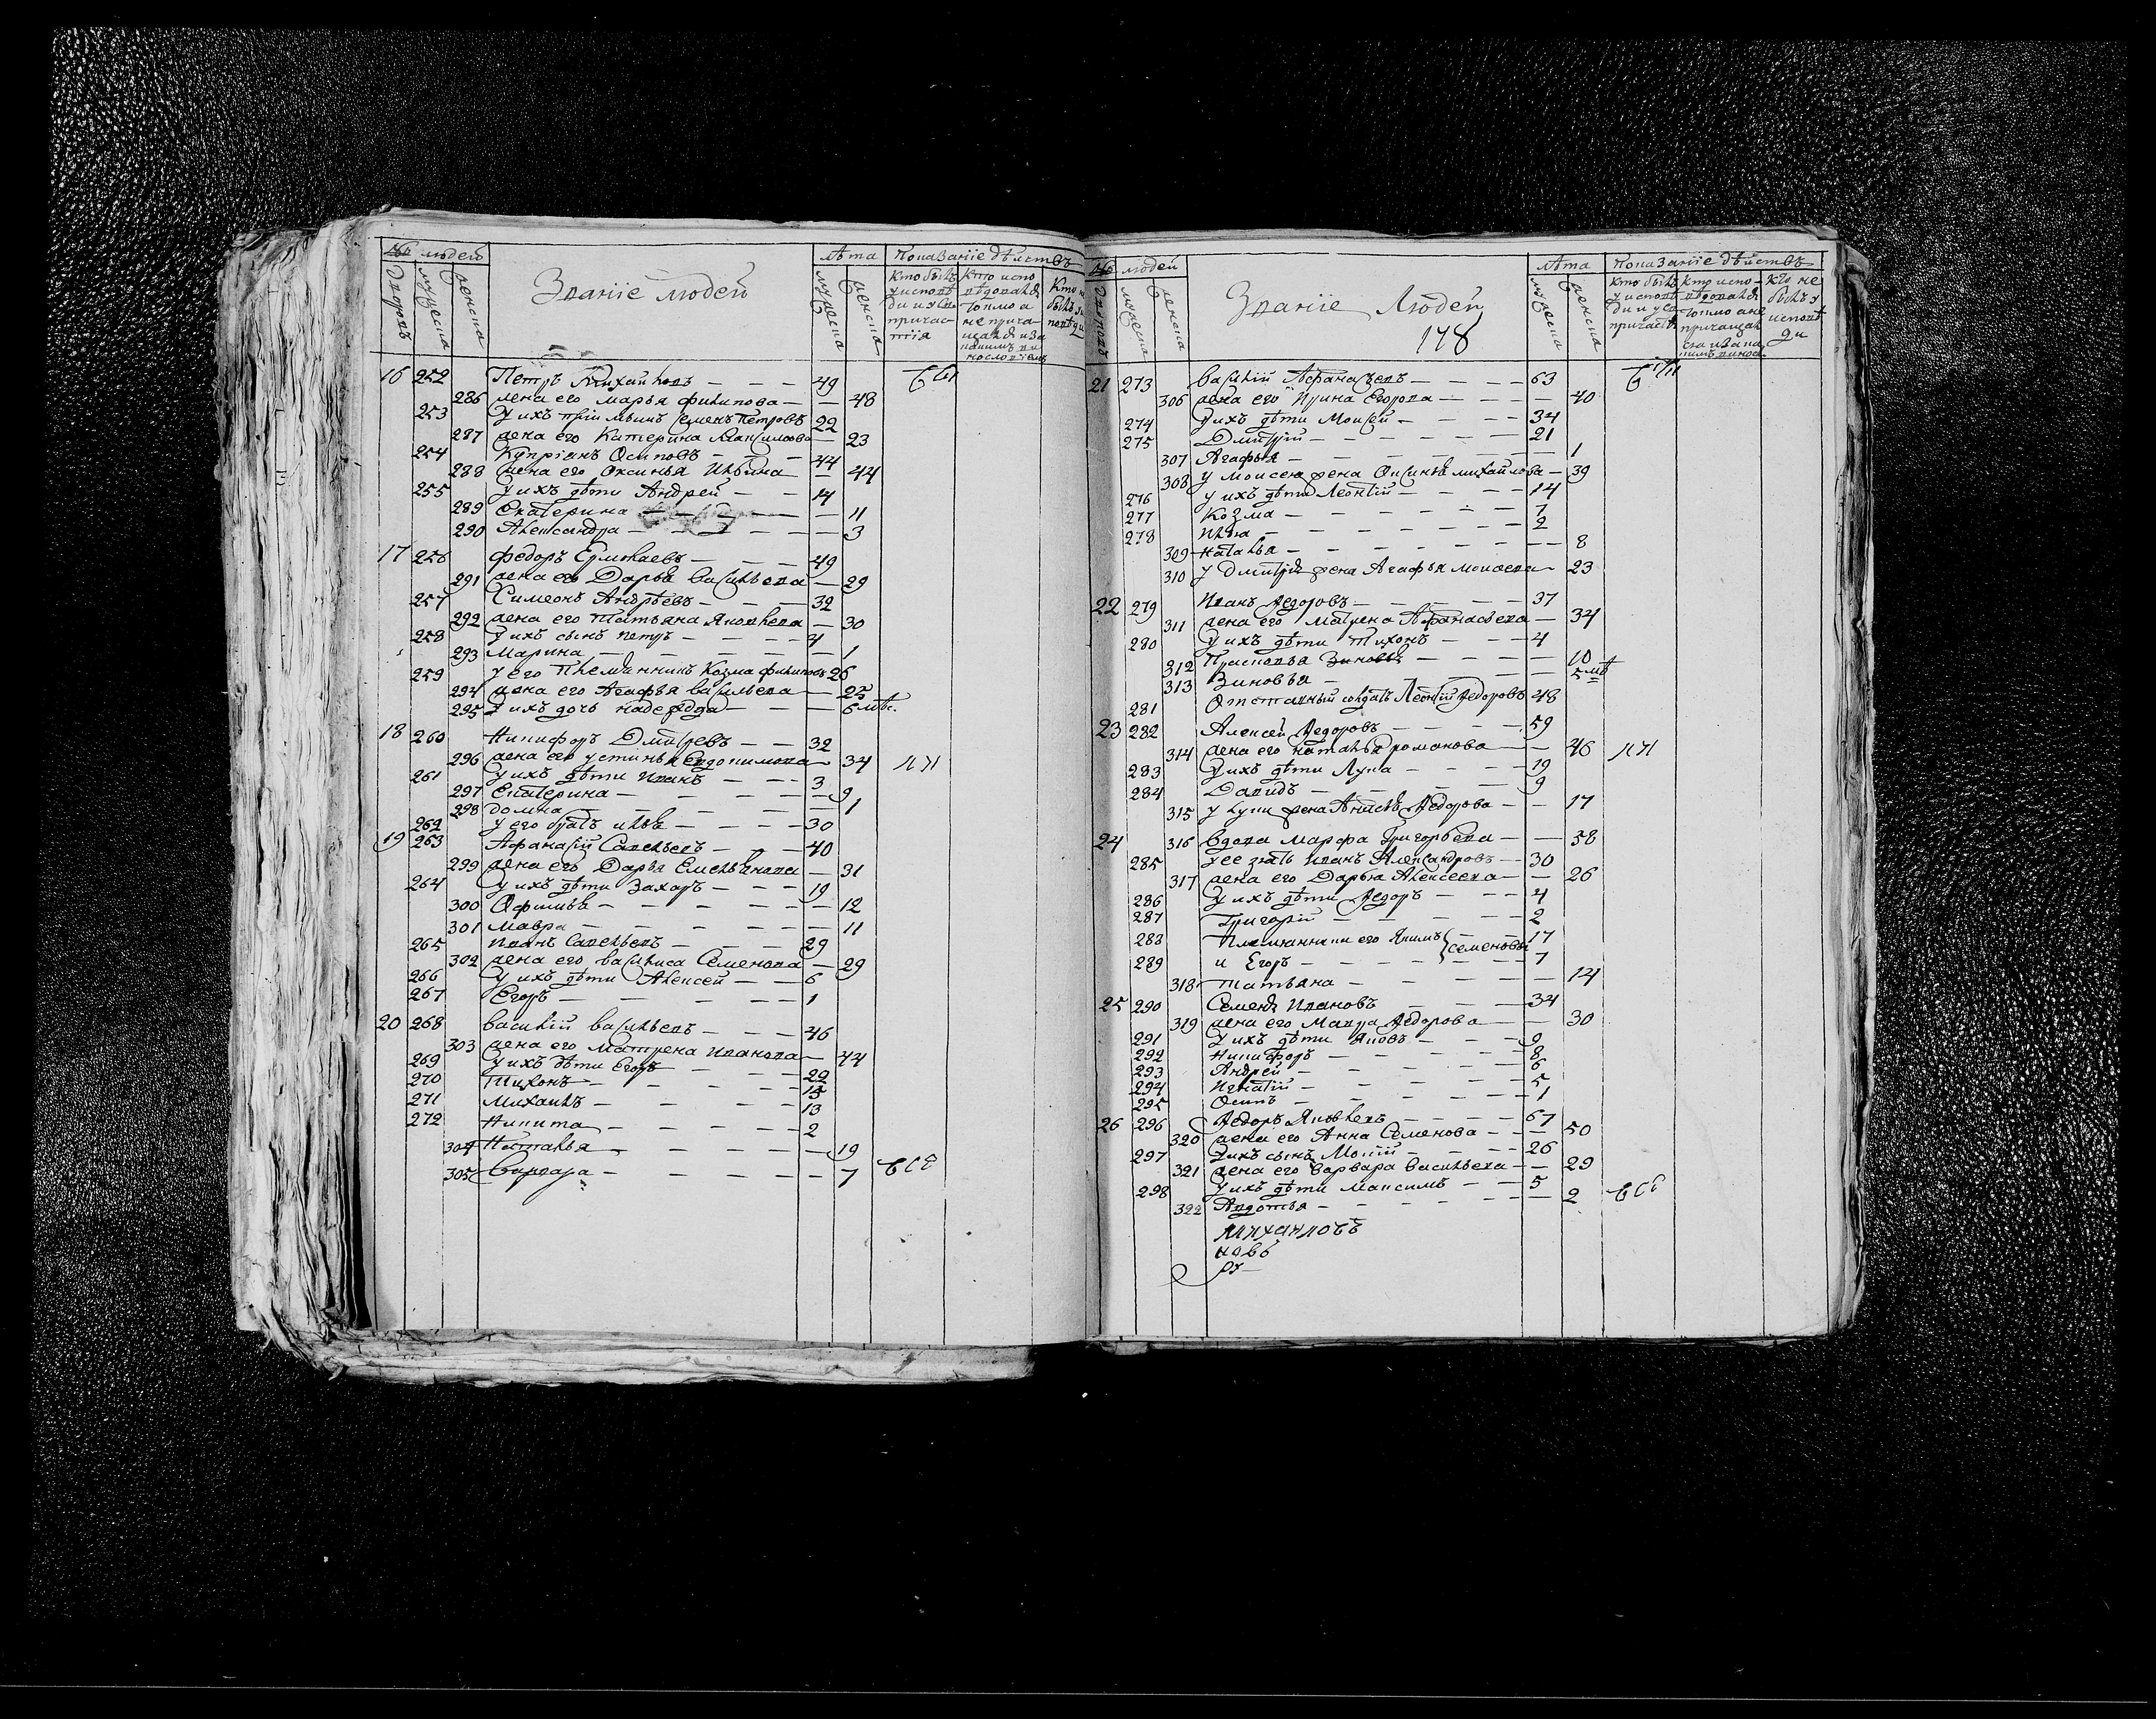 № людей
лѣта
Показанїе дѣйствъ
Дворовъ
мужеска
женска
Званїе людей
мужеска
женска
Кто былъ у исповѣди и у св. причастїя
Кто исповѣдовался токмо а не причащался и за какимъ винословїемъ
Кто не былъ у исповѣди
16 252 Петръ Михайловъ — — — 49 Были
286 жена его Марья филипова — — 48
253 У ихъ прїимышъ Семенъ Петровъ 22
287 жена его Катерина Максимова — 23
254 Купрїянъ Осиповъ — — — 44
288 жена его Оксинья Ильина — 44
255 У ихъ дѣти Андрей — — 14
289 Екатерина — — — 11
290 Александра — — — — 3
17 256 федоръ Ермолаевъ — — — 49
291 жена его Дарья Васильева — 29
257 Симеонъ Андрѣевъ — — — 32
292 жена его Татьяна Яковлева — 30
258 У ихъ сынъ петръ — — — 4
293 Марина — — — — — 1
259 у его племянникъ Козма филиповъ 26
294 жена его Агафья Васильева — 25
295 У ихъ дочь надежда — — — 6 мѣс.
18 260 Никифоръ Дмитревъ — — 32
296 жена его устинья Евдокимова — 34 ли
261 У ихъ дѣти Иванъ — — — 3
297 Екатерина — — — — 9
298 домна — — — — — 1
262 У его братъ илья — — — 30
19 263 Афанасїй Савельевъ — — 40
299 жена его Дарья Емельянова — 31
264 У ихъ дѣти Захаръ — — — 19
300 Офимья — — — — — 12
301 Мавра — — — — — 11
265 Иванъ Савельевъ — — — 29
302 жена его Василиса Семенова — 29
266 У ихъ дѣти Алексей — — 6
267 Егоръ — — — — — 1
20 268 Василїй Васильевъ — — — 46
303 жена его Матрена Иванова — 44
269 У ихъ дѣти Егоръ — — — 22
270 Тихонъ — — — — 15
271 Михаилъ — — — — 13
272 Никита — — — — 2
304 Наталья — — — — — 19
305 Варвара — — — — — 7 всѣ
№ людей
лѣта
Показанїе дѣйствъ
Дворовъ
мужеска
женска
Званїе Людей
178
мужеска
женска
Кто былъ у исповѣди и у св. причастїя
Кто исповѣдовался токмо а не причащался и за какимъ винос.
Кто не былъ у исповѣди
21 273 Василїй Афанасьевъ — — — — 63 Были
306 жена его Ирина Егорова — — — — 40
274 У ихъ дѣти Моисей — — — 34
275 Дмитрїй — — — — — — 21
307 Агафья — — — — — — 1
308 у Моисея жена Оксинья михайлова — 39
276 у ихъ дѣти Леонтїй — — — — 14
277 Козма — — — — — — 7
278 Илья — — — — — — 2
309 Наталья — — — — — — 8
310 у Дмитрїя жена Агафья Моисеева — 23
22 279 Иванъ Ѳедоровъ — — — — 37
311 жена его Матрена Афанасьева — 34
280 У ихъ дѣти Тихонъ — — — 4
312 Прасковья — — — — 10
313 Зиновья — — — — 5 мѣ
281 Отставный солдатъ Леонтїй Ѳедоровъ 48
23 282 Алексей Ѳедоровъ — — — — 59
314 жена его наталья романова — — 46 ли
283 У ихъ дѣти Лупа — — — — 19
284 Давидъ — — — — — 9
315 у лупы жена Анисья Ѳедорова — — 17
24 316 Вдова Марфа Григорьева — — 58
285 у ее зять Иванъ Александровъ — 30
317 жена его Дарья Алексеева — — 26
286 У ихъ дѣти Ѳедоръ — — — 4
287 Григорїй — — — — — 2
288 Племянники его Якимъ — — 17
Семеновы
289 и Егоръ — — — — — — 7
318 Татьяна — — — — — 14
25 290 Семенъ Ивановъ — — — 34
319 жена его Мавра Ѳедорова — — 30
291 У ихъ дѣти Яковъ — — — 9
292 Никифоръ — — — — 8
293 Андрей — — — — — 6
294 Игнатїй — — — — — 5
295 Осипъ — — — — — 1
26 296 Ѳедоръ Яковлевъ — — — — 67
320 жена его Анна Семенова — — — 50
297 У ихъ сынъ Мокїй — — — 26
321 жена его Варвара Васильева — — 29
298 У ихъ дѣти Максимъ — — 5
322 Авдотья — — — — — — 2 всѣ
Михаиловъ